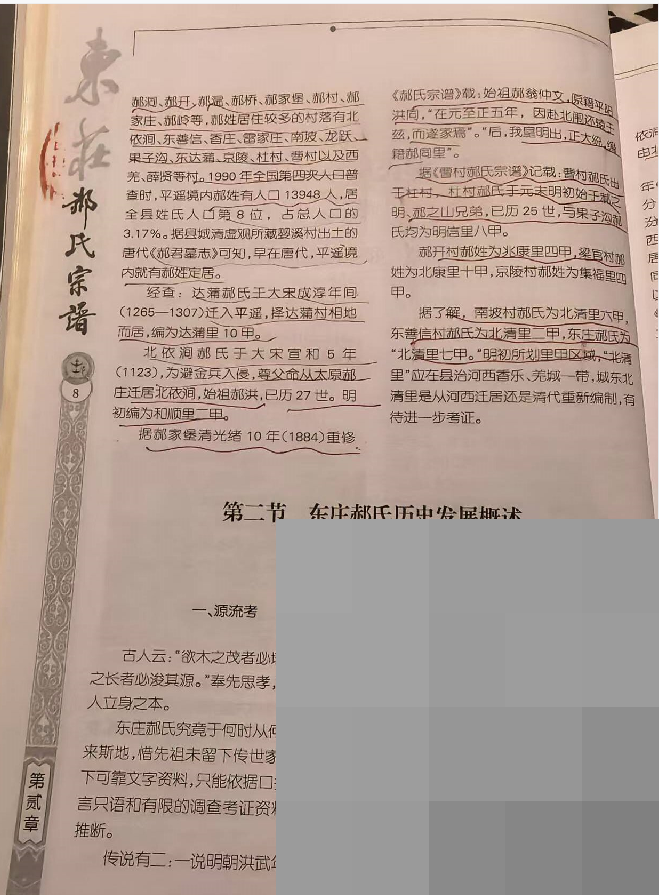 东庄
郝氏宗谱
8
第贰章
郝洞、郝开、郝温、郝桥、郝家堡、郝村、郝
家庄、郝岭等，郝姓居住较多的村落有北
依涧、东善信、香庄、雷家庄、南坡、龙跃、
果子沟、东达蒲、京陵、杜村、曹村以及西
羌、薛贤等村。1990年全国第四次人口普
查时，平遥境内郝姓有人口13948人，居
全县姓氏人口第8位，占总人口的
3.17%。据县城清虚观所藏婴溪村出土的
唐代《郝君墓志》可知，早在唐代，平遥境
内就有郝姓定居。
经查：达蒲郝氏于大宋咸淳年间
(1265—1307)迁入平遥，择达蒲村相地
而居，编为达蒲里10甲。
北依涧郝氏于大宋宣和5年
(1123)，为避金兵入侵，尊父命从太原郝
庄迁居北依涧，始祖郝洪，已历27世。明
初编为和顺里二甲。
据郝家堡清光绪10年(1884)重修
《郝氏宗谱》载：始祖郝翁仲文，原籍平阳
洪同，“在元至正五年，因赴北围还镜
兹，而遂家焉”。“后，我皇明出，正大
籍郝同里”。
据《曹村郝氏宗谱》记载：曹村郝氏出
于杜村，杜村郝氏于元末明初始于郝之
明、郝之山兄弟，已历25世，与果子沟郝
氏均为明信里八甲。
郝开村郝姓为兆康里四甲，梁官村郝
姓为北康里十甲，京陵村郝姓为集福里四
甲。
据了解，南坡村郝氏为北清里六甲，
东善信村郝氏为北清里二甲，东庄郝氏为
“北清里七甲。”明初所划里甲区域，“北清
里”应在县治河西香乐、羌城一带，城东北
清里是从河西迁居还是清代重新编制，有
待进一步考证。
第二节 东庄郝氏历史发展概述
一、源流考
古人云：“欲木之茂者必
之长者必浚其源。”奉先思孝，
人立身之本。
东庄郝氏究竟于何时从何
来斯地，惜先祖未留下传世家
下可靠文字资料，只能依据口
言只语和有限的调查考证资料
推断。
传说有二：一说明朝洪武年